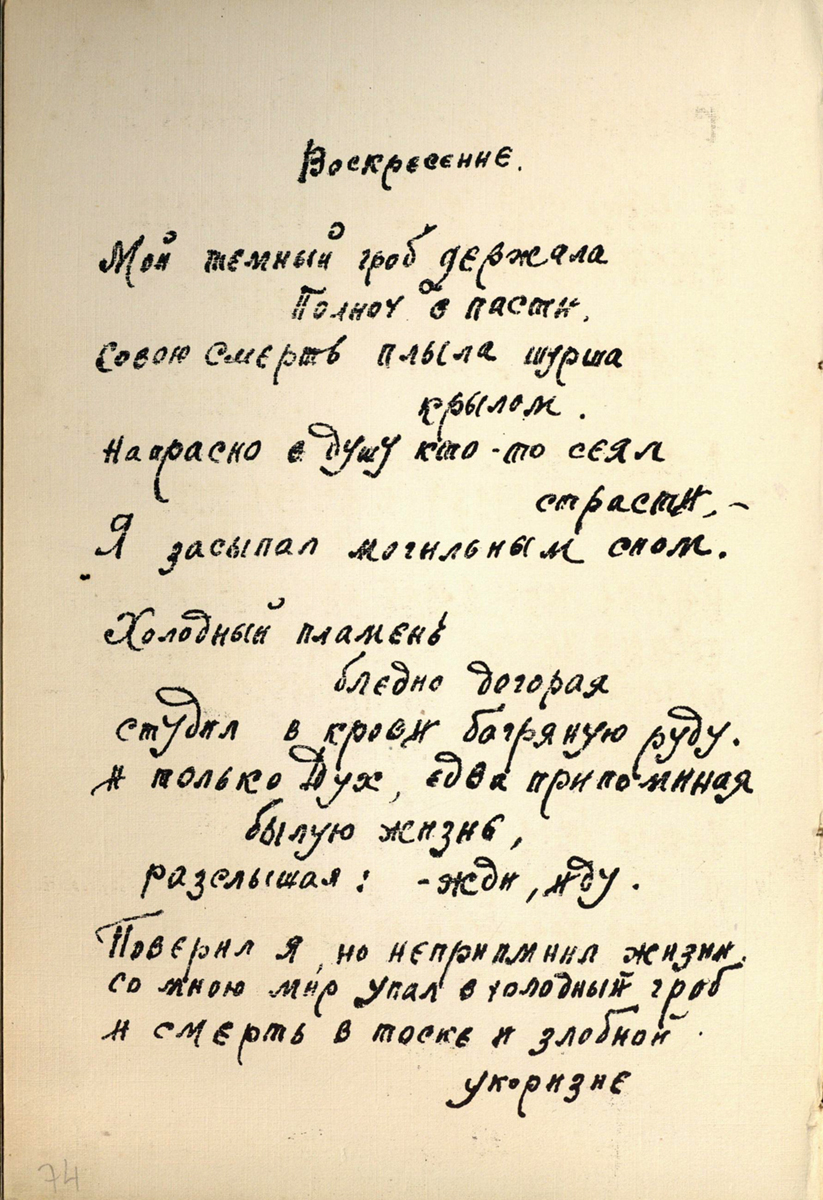 Воскресение.
Мой темный гроб держала
Полноч в пасти.
Совою смерть плыла шурша
крылом.
Напрасно в душу кто-то сеял
страсти, –
Я засыпал могильным сном.
Холодный пламень
бледно догорая
студил в крови багряную руду.
и только Дух, едва припоминая
былую жизнь,
разслышал: - жди, иду.
Поверил я, но неприпомнил жизни.
со мною мир упал в холодный гроб
и смерть в тоске и злобной
укоризне
74